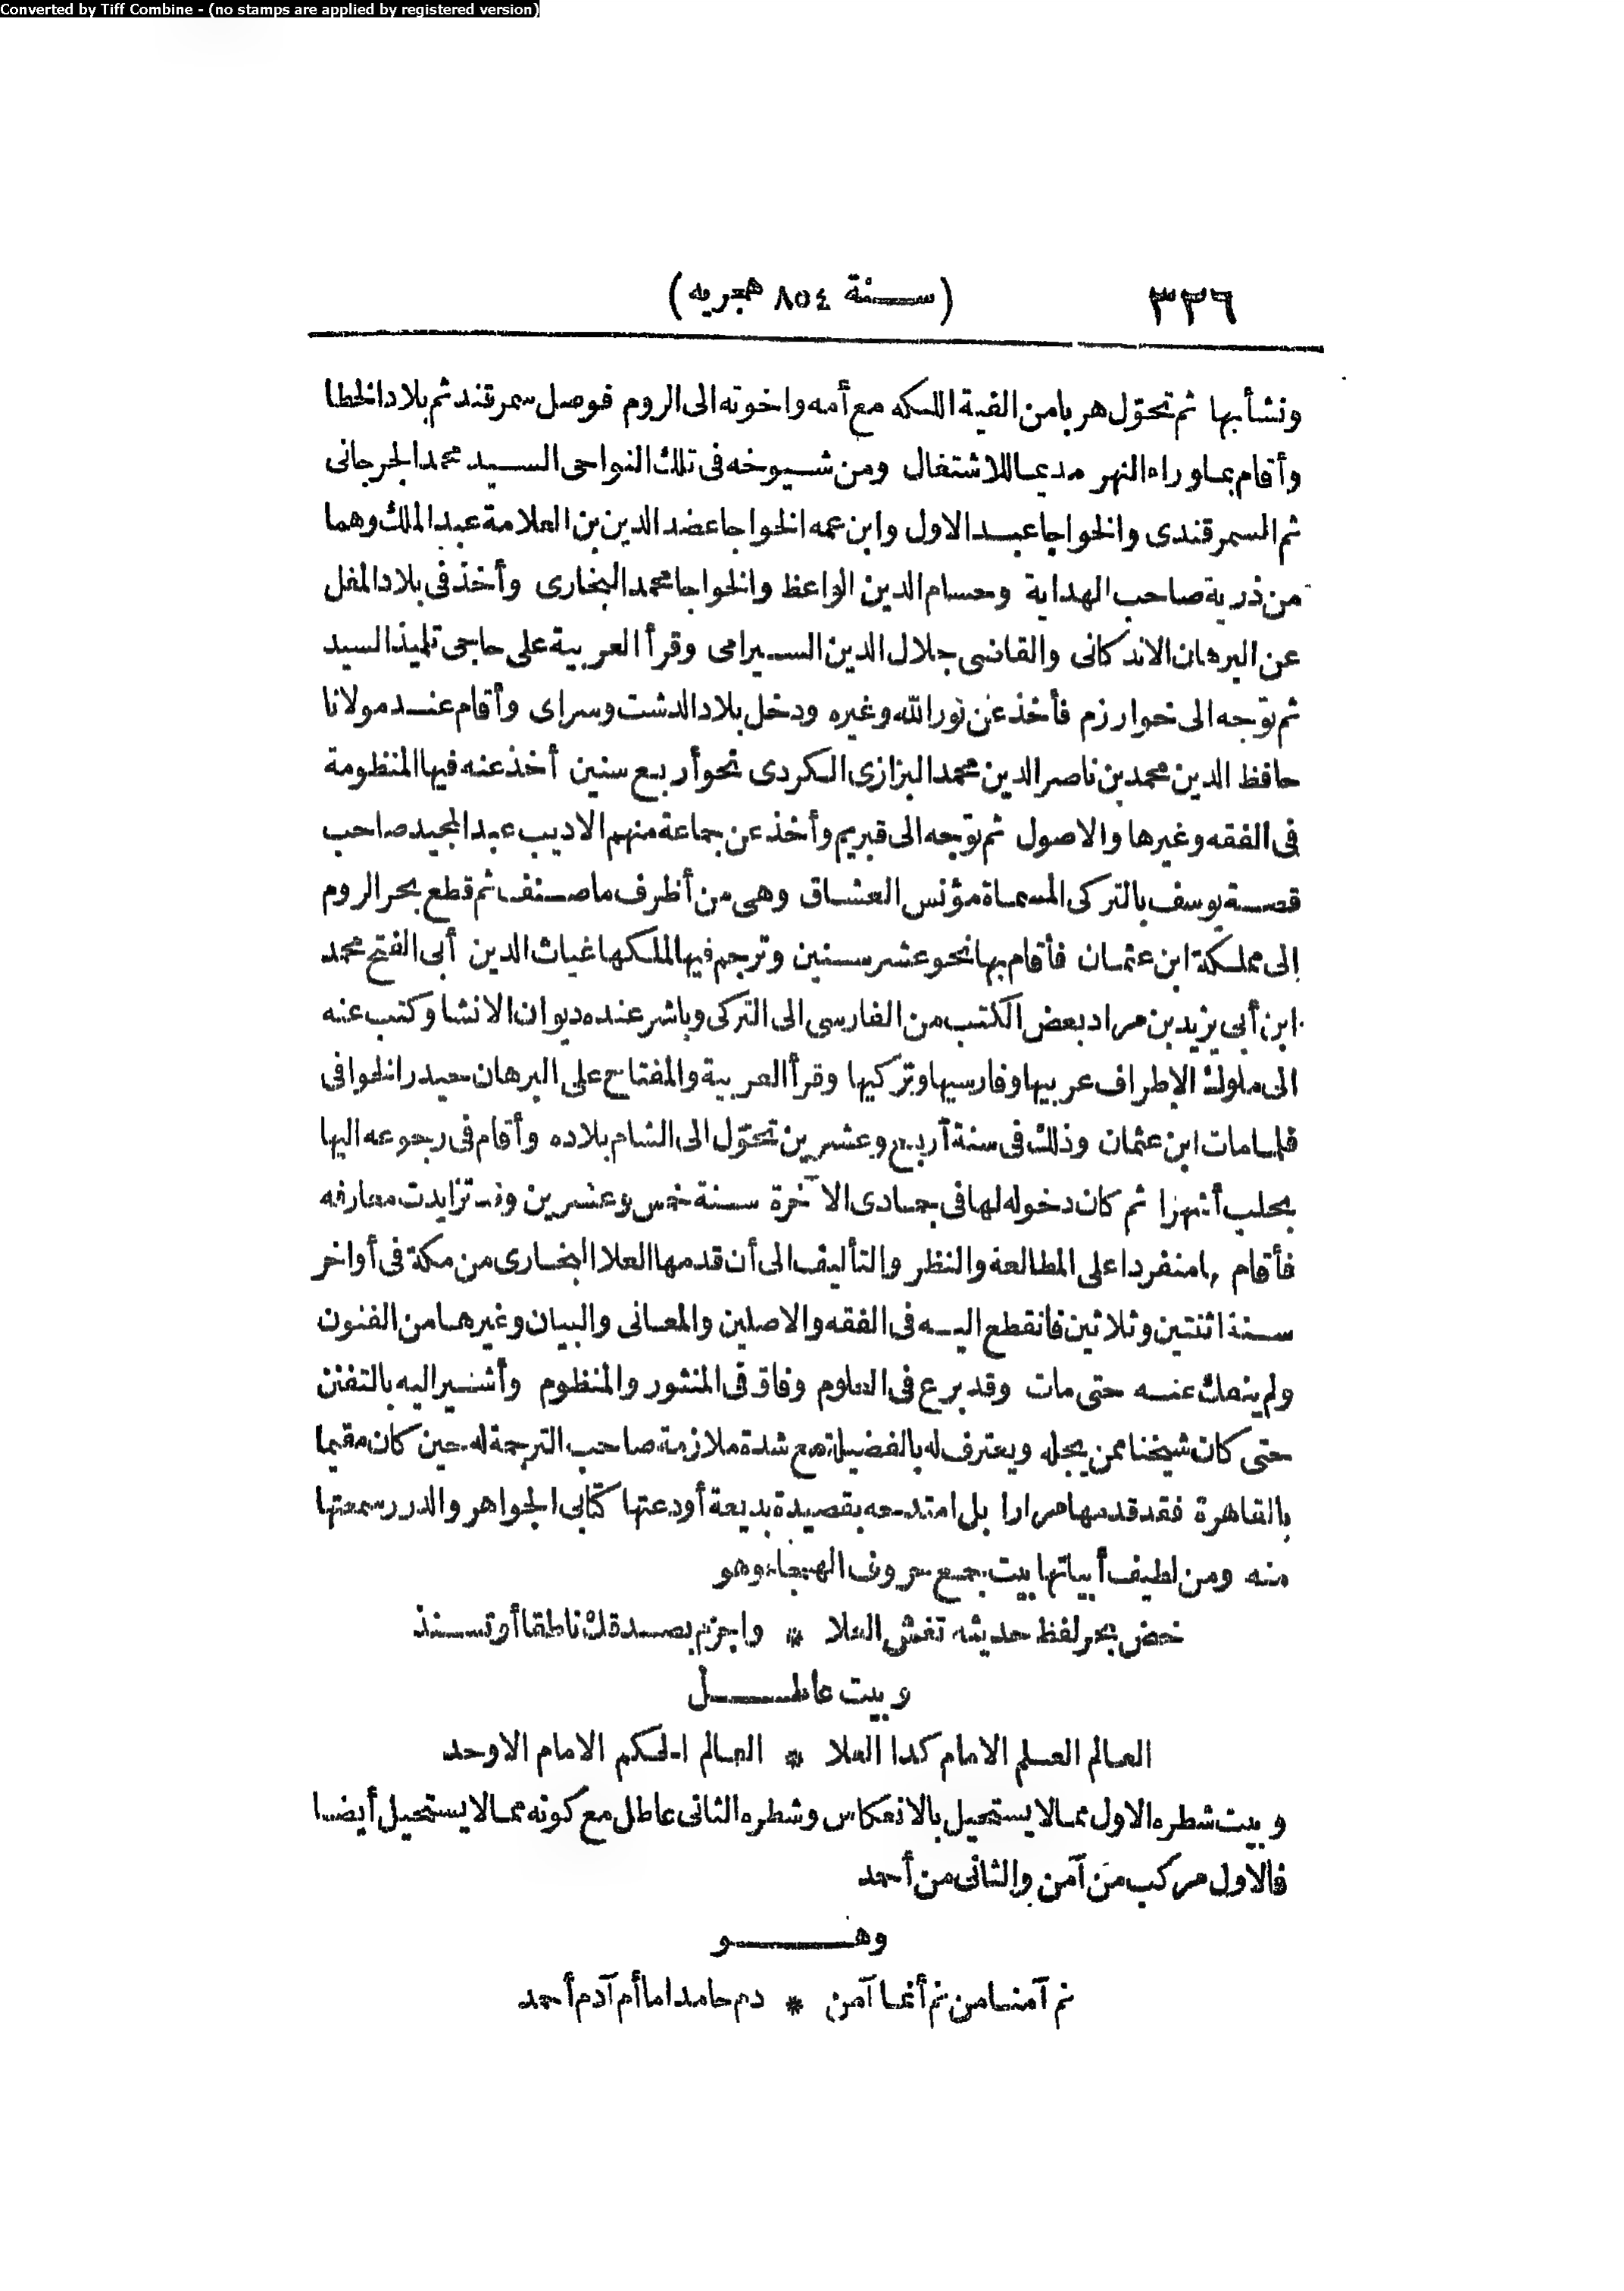 Converted by Tiff Combine - (no stamps are applied by registered version)
٣٣٦ (سنة ٨٥٤ هجريه)
ونشأ بها ثم تحوّل هربا من الفية اللنكه مع أمه واخوته الى الروم فوصل سمرقند ثم بلاد الخطا
وأقام بما وراء النهر مديما للاشتغال ومن شيوخه فى تلك النواحى السيد محمد الجرجانى
ثم السمرقندى والخواجا عبد الاول وابن عمه الخواجا عضد الدين بن العلامة عبد الملك وهما
من ذرية صاحب الهداية وحسام الدين الواعظ والخواجا محمد البخارى وأخذ فى بلاد المغل
عن البرهان الاندكانى والقاضى جلال الدين السيرامى وقرأ العربية على حاجى تلميذ السيد
ثم توّجه الى خوارزم فأخذ عن نور الله وغيره ودخل بلاد الدشت وسراى وأقام عند مولانا
حافظ الدين محمد بن ناصر الدين محمد البزازى الكردى نحو أربع سنين أخذ عنه فيها المنظومة
فى الفقه وغيرها والاصول ثم توّجه الى قريم وأخذ عن جماعة منهم الاديب عبد المجيد صاحب
قصة يوسف بالتركى المسماة مؤنس العشاق وهى من أظرف ما صنف ثم قطع بحر الروم
إلى مملكة ابن عثمان فأقام بها نحو عشر سنين وترجم فيها لملكها غياث الدين أبى الفتح محمد
ابن أبى يزيد بن مراد بعض الكتب من الفارسى الى التركى وباشر عنده ديوان الانشا وكتب عنه
الى ملوك الاطراف عربيها وفارسيها وتركيها وقرأ العربية والمفتاح على البرهان حيدر الخوافى
فلما مات ابن عثمان وذلك فى سنة أربع وعشرين تحوّل الى الشام بلاده وأقام فى رجوعه اليها
بحلب أشهرا ثم كان دخوله لها فى جمادى الآخرة سنة خمس وعشرين وقد تزايدت معارفه
فأقام بها منفردا على المطالعة والنظر والتأليف الى أن قدمها العلا البخارى من مكة فى أواخر
سنة اثنتين وثلاثين فانقطع اليه فى الفقه والاصلين والمعانى والبيان وغيرها من الفنون
ولم ينفك عنه حتى مات وقد برع فى العلوم وفاق فى المنثور والمنظوم وأشير اليه بالتفنن
حتى كان شيخنا ممن يجله ويعترف له بالفضيلة مع شدة ملازمة صاحب الترجمة له حين كان مقيما
بالقاهرة فقد قدمها مرارا بل امتدحه بقصيدة بديعة أودعتها كتابى الجواهر والدرر سمعتها
منه ومن لطيف أبياتها بيت جمع حروف الهجاء وهو
خض بحر لفظ حديثه تغش العلا * واجزم بصدقك ناطقا أو تسند
وبيت عاطل
العالم العلم الامام كدا العلا * العالم الحكم الامام الاوحد
وبيت شطره الاول مما لا يستحيل بالانعكاس وشطره الثانى عاطل مع كونه مما لا يستحيل أيضا
فالاول مركب من آمن والثانى من أحمد
وهو
نم آمنا من نم أنما آمن * دم حامدا ما أم آدم أحمد